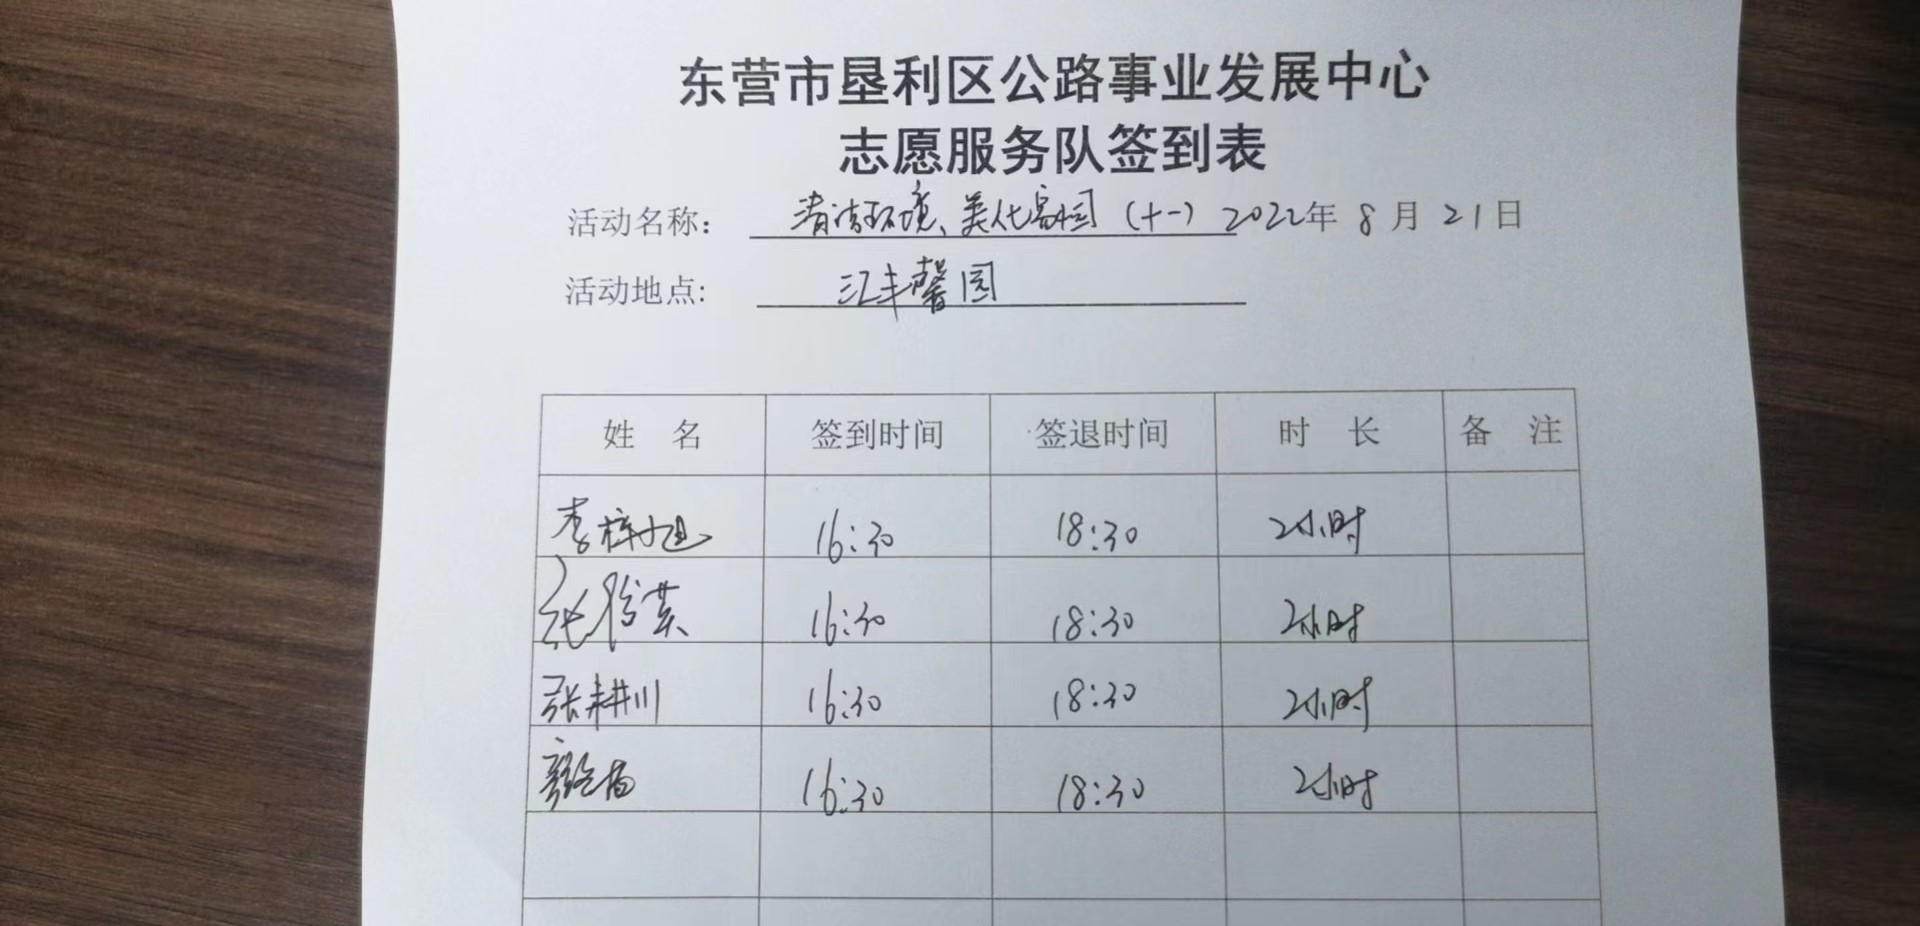 东营市垦利区公路事业发展中心
志愿服务队签到表
活动名称： 清洁环境、美化家园（十一） 2022年 8月 21日
活动地点: 江丰馨园
姓 名 签到时间 签退时间 时 长 备 注
李梓旭 16:30 18:30 2小时
张 16:30 18:30 2小时
张耕川 16:30 18:30 2小时
16:30 18:30 2小时